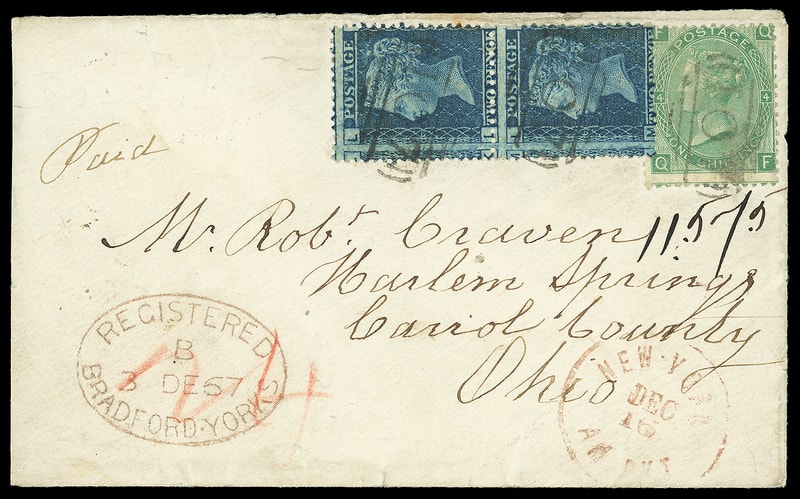 POSTAGE TWO PENCE
L L
POSTAGE TWO PENCE
L M
F Q
POSTAGE
4 4
ONE SHILLING
Q F
Paid
Mr. Robt. Craven
11575
Harlem Springs
Carrol County
Ohio
REGISTERED
B
3 DE 67
BRADFORD·YORKS
NEW·YORK
DEC
16